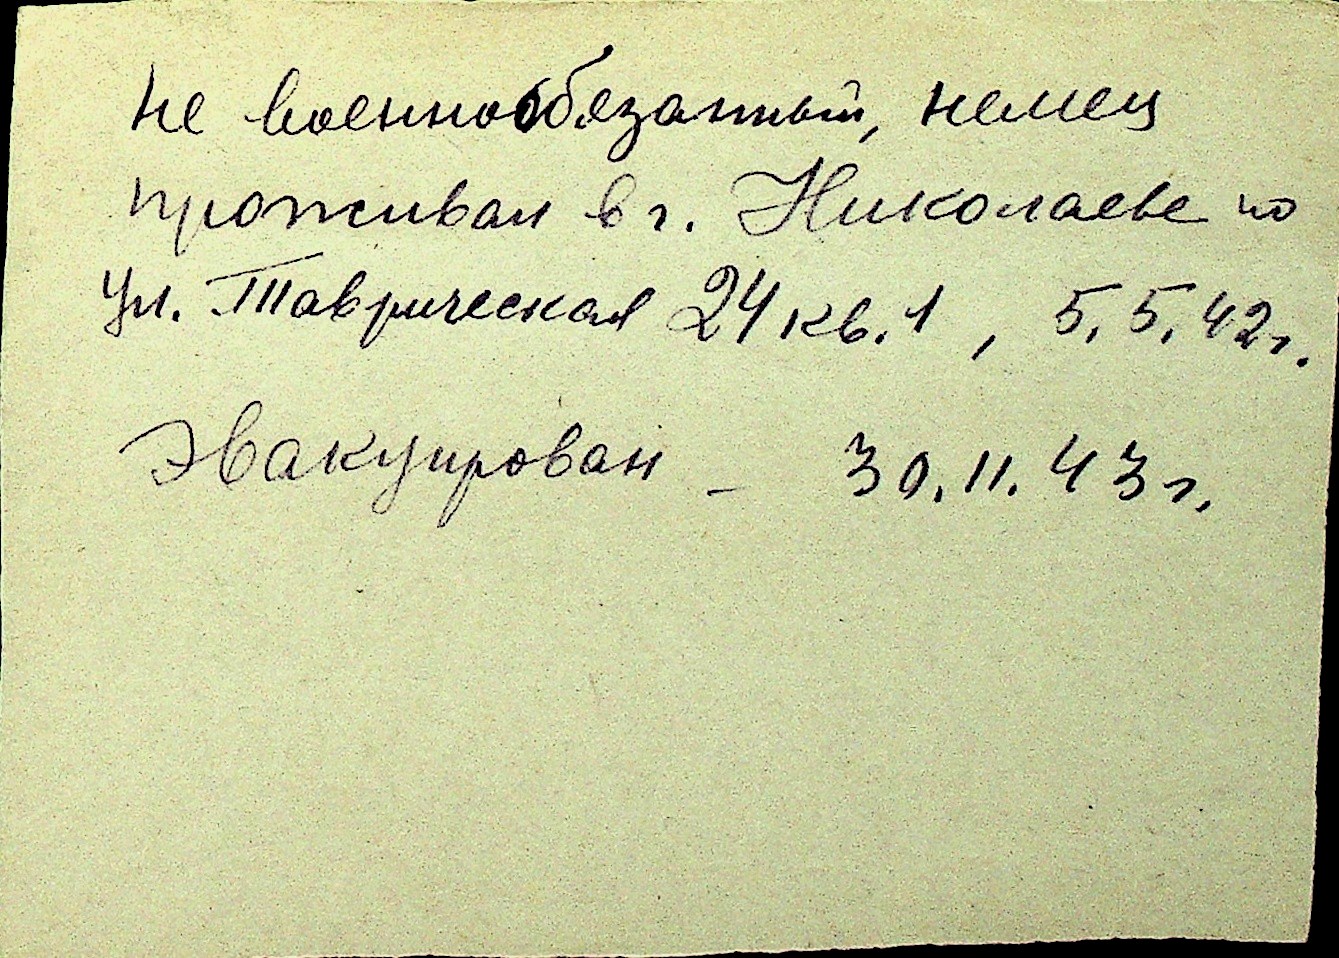 не военнообязанный, немец
проживал в г. Николаеве по
ул. Таврическая 24 кв. 1, 5.5.42г.
Эвакуирован - 30.11.43г.